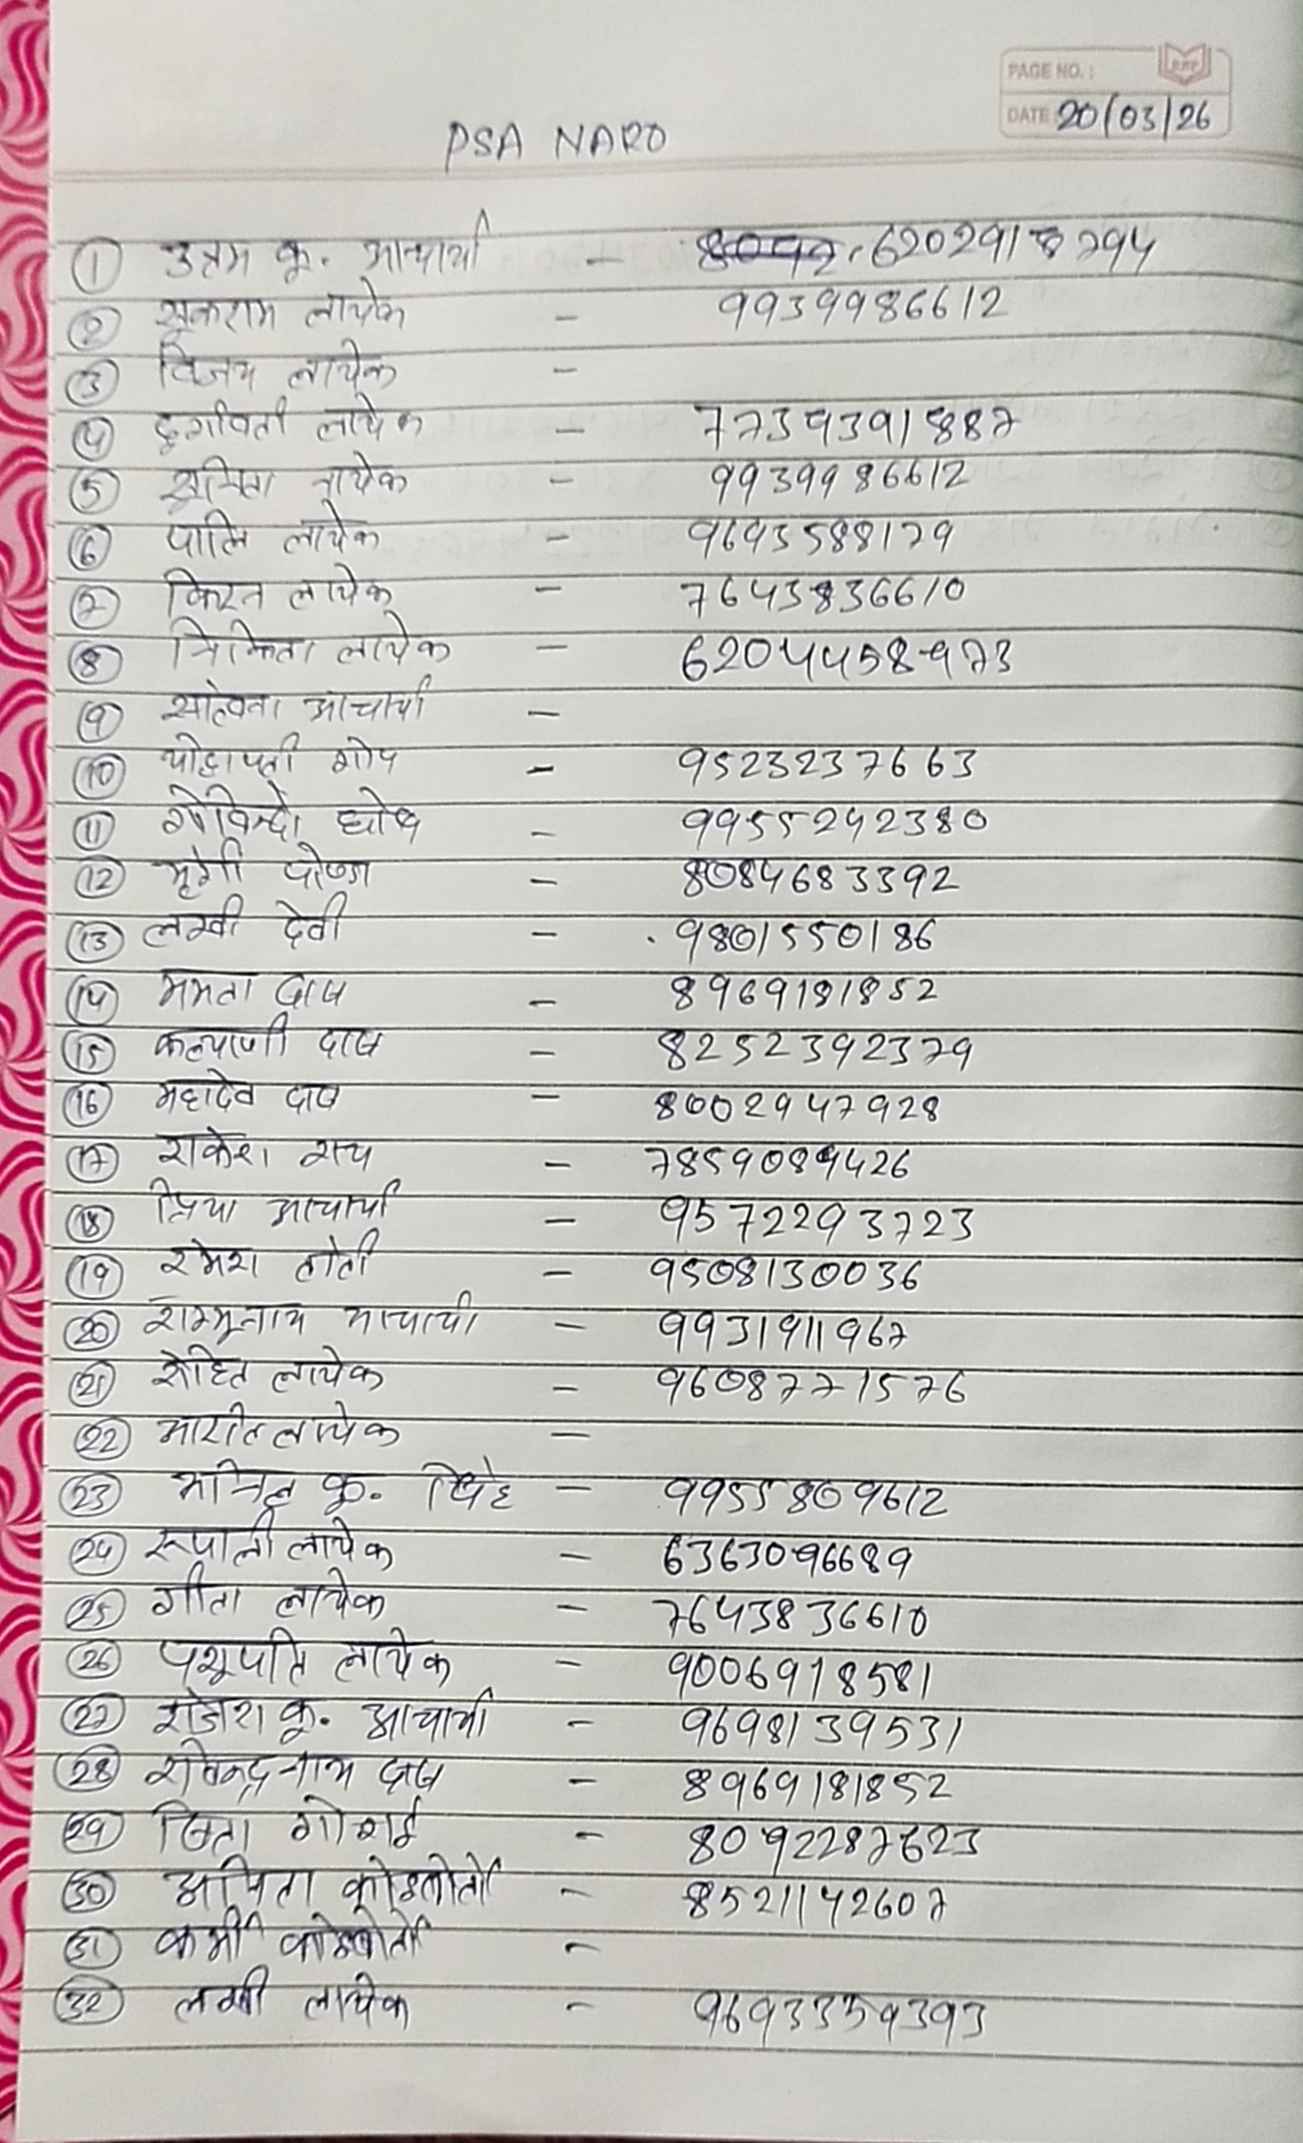 PAGE NO. :
DATE 20/03/26
PSA NARO
① उत्तम कु. आचार्या - 6202918794
② सुकराम लायेक - 9939986612
③ विजय लायेक -
④ दुर्गावती लायेक - 7739391887
⑤ लायेक - 9939986612
⑥ पालि लायेक - 9693588179
⑦ किरन लायेक - 7643836610
⑧ लायेक - 6204458973
⑨ आचार्या -
⑩ गोप - 9523237663
⑪ घोष - 9955242380
⑫ - 8084683392
⑬ लखी देवी - 9801550186
⑭ ममता दास - 8969181852
⑮ कल्याणी दास - 8252392379
⑯ महादेव दास - 8002947928
⑰ राकेश राय - 7859089426
⑱ प्रिया आचार्या - 9572293723
⑲ रमेश तांती - 9508130036
⑳ शम्भूनाथ आचार्या - 9931911967
㉑ रोहित लायेक - 9608771576
㉒ लायेक -
㉓ कु. सिंह - 9955809612
㉔ रूपाली लायेक - 6363096689
㉕ गीता लायेक - 7643836610
㉖ पशुपति लायेक - 9006918581
㉗ राजेश कु. आचार्या - 9698139531
㉘ दास - 8969181852
㉙ गोराई - 8092287623
㉚ - 8521142607
㉛ -
㉜ लखी लायेक - 9693359393